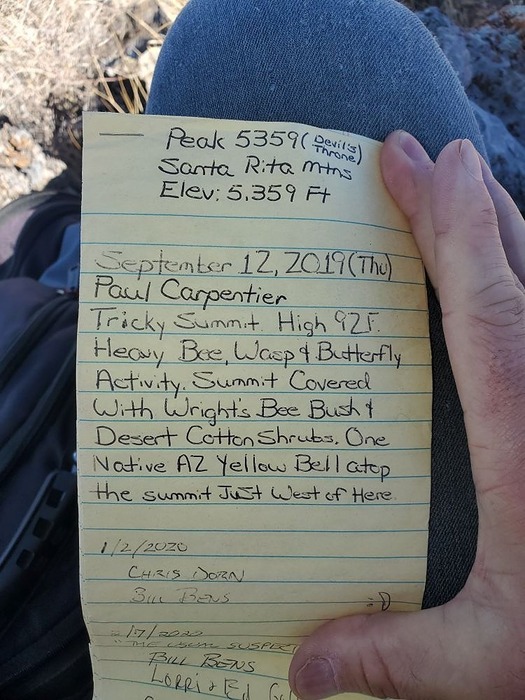 Peak 5359 (Devil's Throne)
Santa Rita Mtns
Elev: 5,359 Ft
September 12, 2019 (Thu)
Paul Carpentier
Tricky Summit. High 92F.
Heavy Bee, Wasp & Butterfly
Activity. Summit Covered
With Wright's Bee Bush &
Desert Cotton Shrubs. One
Native AZ Yellow Bell atop
the summit Just West of Here.
1/2/2020
CHRIS DORN
BILL BENS :D
2/7/2020
"THE USUAL SUSPECT
BILL BENS
LORRI & Ed